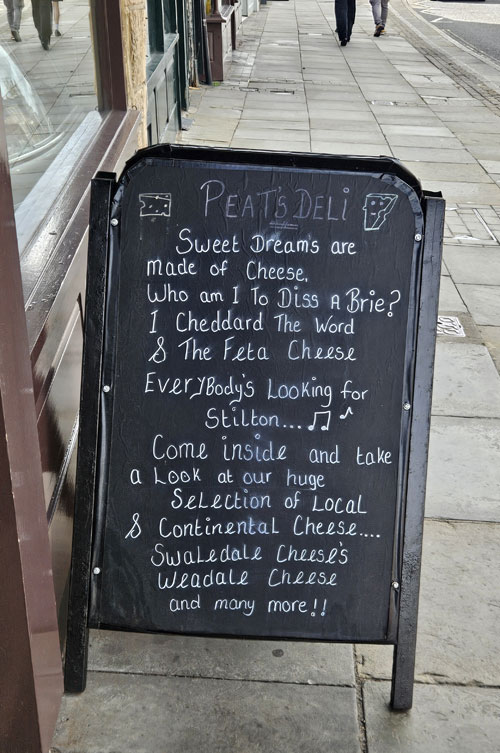 PEAT'S DELI
Sweet Dreams are
made of Cheese,
Who am I To Diss A Brie?
I Cheddard The Word
& The Feta Cheese
EverYBody's Looking for
Stilton...
Come inside and take
a Look at our huge
Selection of Local
& Continental Cheese....
Swaledale Cheese's
Weadale Cheese
and many more!!